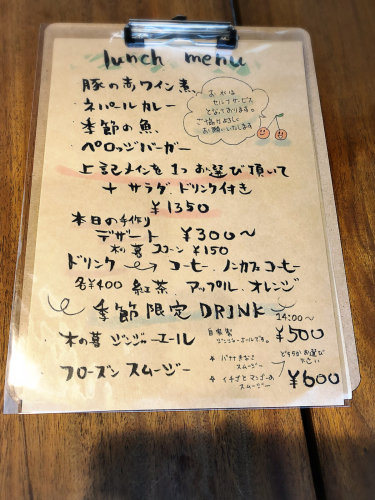 lunch menu
豚の赤ワイン煮
ネパールカレー
季節の魚
ペロッツバーガー
お水は
セルフサービス
となっております。
ご協力よろしく
お願いいたします
上記メインを1つお選び頂いて
+ サラダ、ドリンク付き
¥1350
本日の手作り
デザート ¥300〜
木の葺 スコーン ¥150
ドリンク コーヒー、ノンカフェコーヒー
各¥400 紅茶 アップル、オレンジ
季節限定 DRINK
14:00〜
木の葺 ジンジャーエール
自家製
ジンジャーエールです。
¥500
フローズン スムージー
バナナきなこ
スムージー
イチゴとマンゴーの
スムージー
どちらかお選び
下さい
¥600